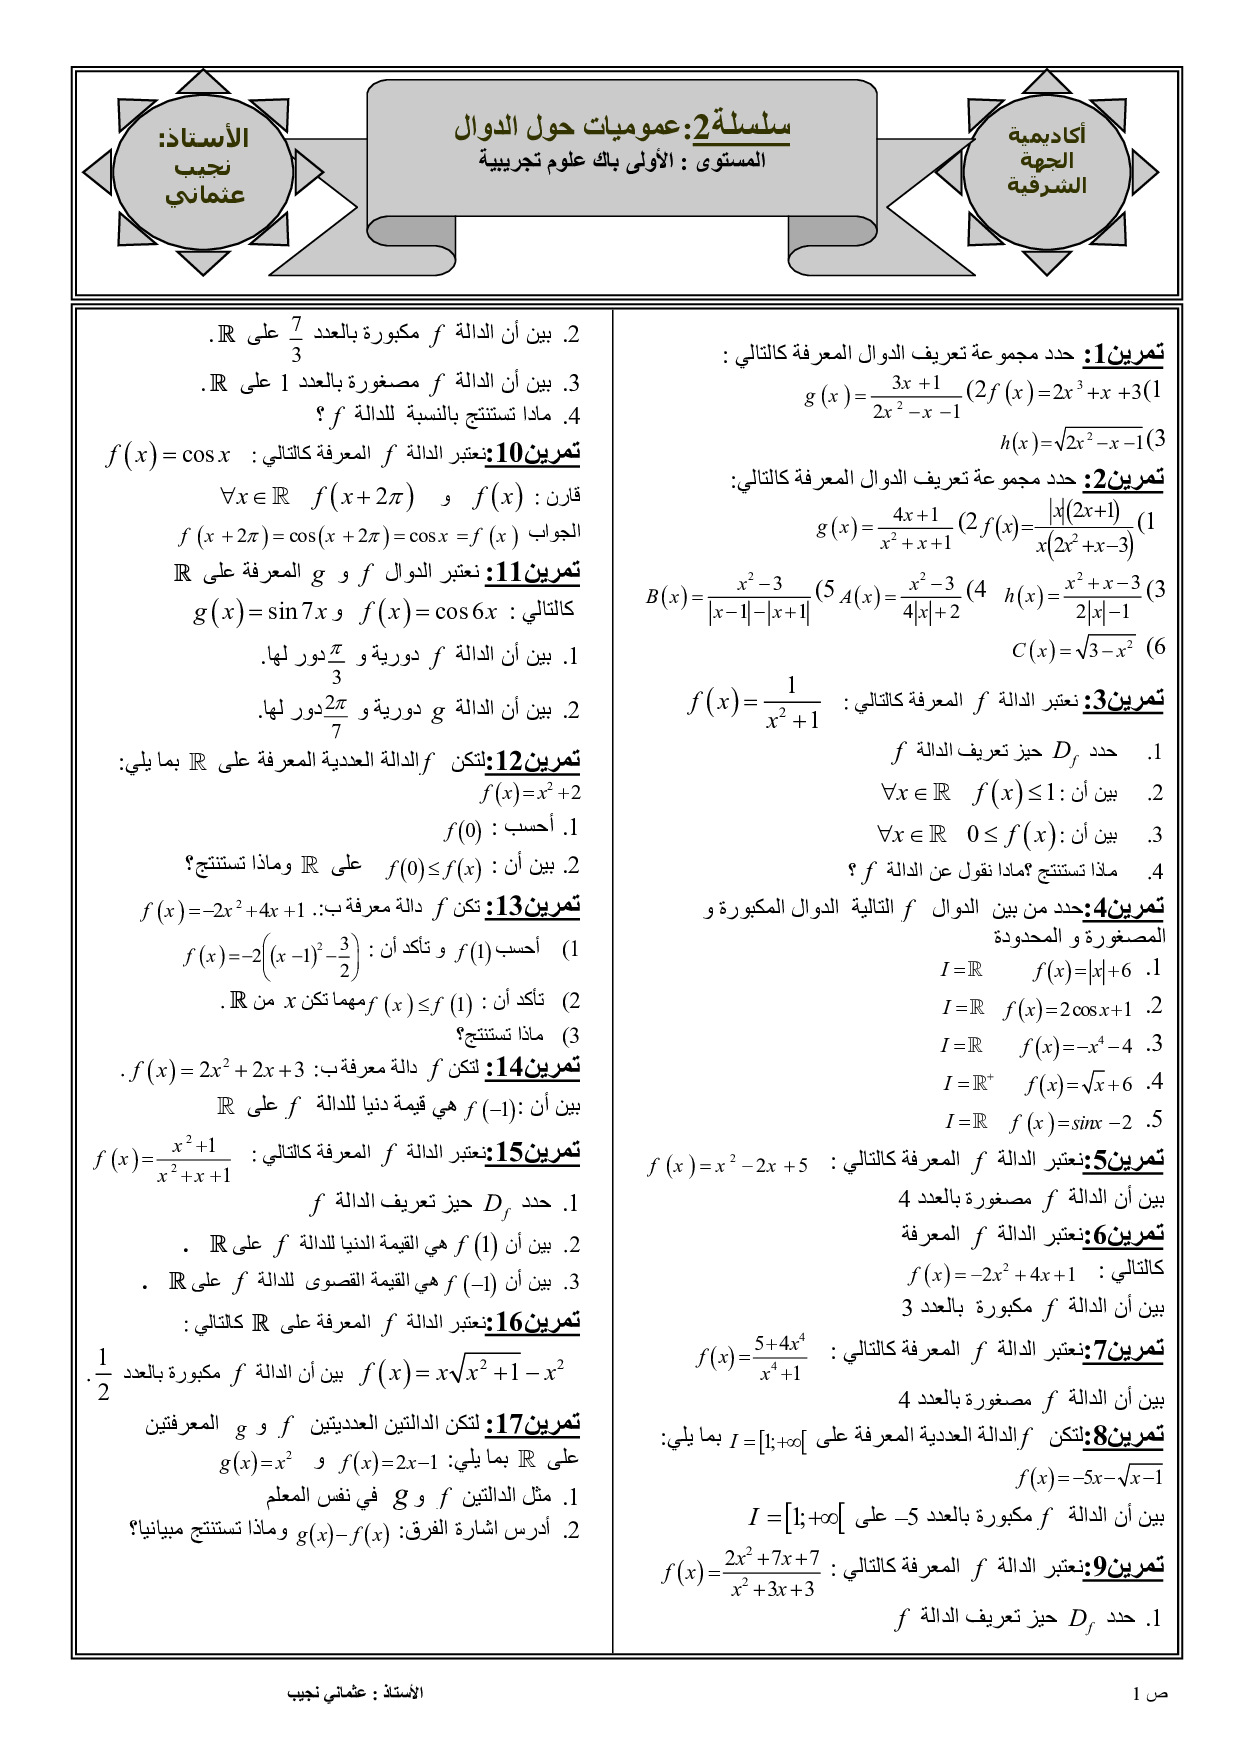 أكاديمية
الجهة
الشرقية
سلسلة2:عموميات حول الدوال
المستوى : الأولى باك علوم تجريبية
الأستاذ:
نجيب
عثماني
تمرين1: حدد مجموعة تعريف الدوال المعرفة كالتالي :
1) f(x)=2x³+x+3 2) g(x)=(3x+1)/(2x²-x-1)
3) h(x)=√(2x²-x-1)
تمرين2: حدد مجموعة تعريف الدوال المعرفة كالتالي:
1) f(x)=|x|(2x+1)/(x(2x²+x-3)) 2) g(x)=(4x+1)/(x²+x+1)
3) h(x)=(x²+x-3)/(2|x|-1) 4) A(x)=(x²-3)/(4|x|+2) 5) B(x)=(x²-3)/(|x-1|-|x+1|)
6) C(x)=√(3-x²)
تمرين3: نعتبر الدالة f المعرفة كالتالي : f(x)=1/(x²+1)
1. حدد D_f حيز تعريف الدالة f
2. بين أن : f(x)≤1 ∀x∈ℝ
3. بين أن : 0≤f(x) ∀x∈ℝ
4. ماذا تستنتج ؟مادا نقول عن الدالة f ؟
تمرين4:حدد من بين الدوال f التالية الدوال المكبورة و
المصغورة و المحدودة
1. f(x)=|x|+6 I=ℝ
2. f(x)=2cosx+1 I=ℝ
3. f(x)=-x⁴-4 I=ℝ
4. f(x)=√x+6 I=ℝ⁺
5. f(x)=sinx-2 I=ℝ
تمرين5:نعتبر الدالة f المعرفة كالتالي : f(x)=x²-2x+5
بين أن الدالة f مصغورة بالعدد 4
تمرين6:نعتبر الدالة f المعرفة
كالتالي : f(x)=-2x²+4x+1
بين أن الدالة f مكبورة بالعدد 3
تمرين7:نعتبر الدالة f المعرفة كالتالي : f(x)=(5+4x⁴)/(x⁴+1)
بين أن الدالة f مصغورة بالعدد 4
تمرين8:لتكن f الدالة العددية المعرفة على I=[1;+∞[ بما يلي:
f(x)=-5x-√(x-1)
بين أن الدالة f مكبورة بالعدد -5 على I=[1;+∞[
تمرين9:نعتبر الدالة f المعرفة كالتالي : f(x)=(2x²+7x+7)/(x²+3x+3)
1. حدد D_f حيز تعريف الدالة f
2. بين أن الدالة f مكبورة بالعدد 7/3 على ℝ.
3. بين أن الدالة f مصغورة بالعدد 1 على ℝ.
4. مادا تستنتج بالنسبة للدالة f ؟
تمرين10:نعتبر الدالة f المعرفة كالتالي : f(x)=cosx
قارن : f(x) و f(x+2π) ∀x∈ℝ
الجواب f(x+2π)=cos(x+2π)=cosx=f(x)
تمرين11: نعتبر الدوال f و g المعرفة على ℝ
كالتالي : f(x)=cos6x و g(x)=sin7x
1. بين أن الدالة f دورية و π/3 دور لها.
2. بين أن الدالة g دورية و 2π/7 دور لها.
تمرين12:لتكن f الدالة العددية المعرفة على ℝ بما يلي:
f(x)=x²+2
1. أحسب : f(0)
2. بين أن : f(0)≤f(x) على ℝ وماذا تستنتج؟
تمرين13: تكن f دالة معرفة ب:. f(x)=-2x²+4x+1
1) أحسب f(1) و تأكد أن : f(x)=-2((x-1)²-3/2)
2) تأكد أن : f(x)≤f(1) مهما تكن x من ℝ.
3) ماذا تستنتج؟
تمرين14: لتكن f دالة معرفة ب: f(x)=2x²+2x+3 .
بين أن :f(-1) هي قيمة دنيا للدالة f على ℝ
تمرين15:نعتبر الدالة f المعرفة كالتالي : f(x)=(x²+1)/(x²+x+1)
1. حدد D_f حيز تعريف الدالة f
2. بين أن f(1) هي القيمة الدنيا للدالة f على ℝ .
3. بين أن f(-1) هي القيمة القصوى للدالة f على ℝ .
تمرين16:نعتبر الدالة f المعرفة على ℝ كالتالي :
f(x)=x√(x²+1)-x² بين أن الدالة f مكبورة بالعدد 1/2 .
تمرين17: لتكن الدالتين العدديتين f و g المعرفتين
على ℝ بما يلي: f(x)=2x-1 و g(x)=x²
1. مثل الدالتين f و g في نفس المعلم
2. أدرس اشارة الفرق: g(x)-f(x) وماذا تستنتج مبيانيا؟
ص 1
الأستاذ : عثماني نجيب